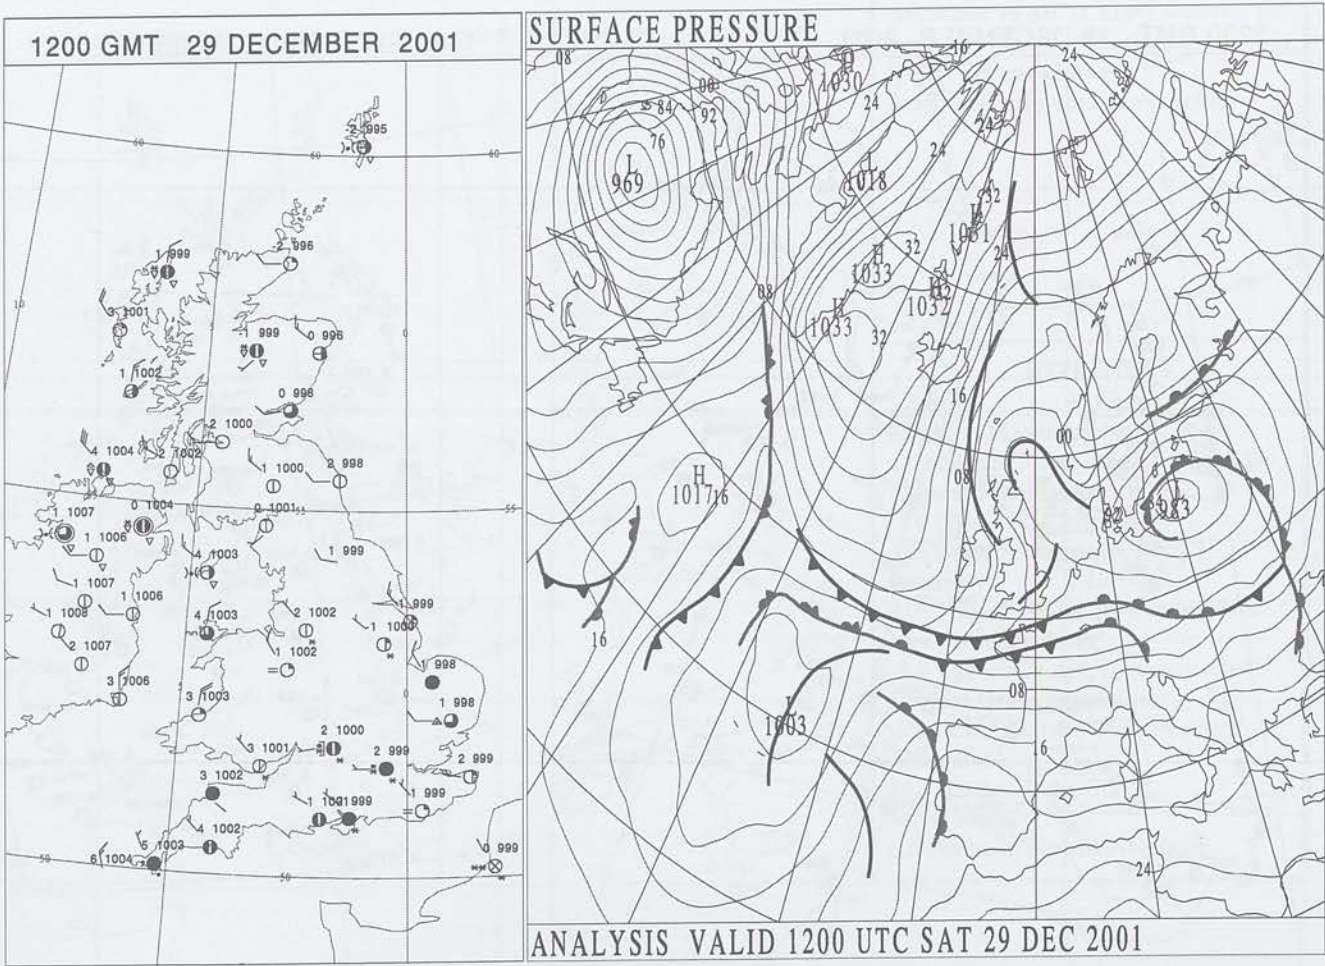 1200 GMT 29 DECEMBER 2001
-2 995
60
60
60
-2 996
1 999
10
3 1001
5
0
-1 999
0 996
1 1002
0 998
2 1000
4 1004
2 1002
1 1000
2 998
1 1007
0 1004
0 1001
55
55
1 1006
4 1003
1 999
1 1007
1 1006
1 1008
4 1003
2 1002
1 999
1 1000
2 1007
1 1002
1 998
3 1006
5
3 1003
0
1 998
2 1000
3 1001
2 999
2 999
3 1002
1 999
4 1002
5 1003
6 1004
50
50
0 999
SURFACE PRESSURE
08
16
24
H
1030
00
84
92
24
76
24
24
L
969
L
1018
32
1031
32
24
H
1033
H
1032
08
H
1033
32
16
00
H
1017
16
08
92
84
983
16
08
L
1003
16
24
ANALYSIS VALID 1200 UTC SAT 29 DEC 2001